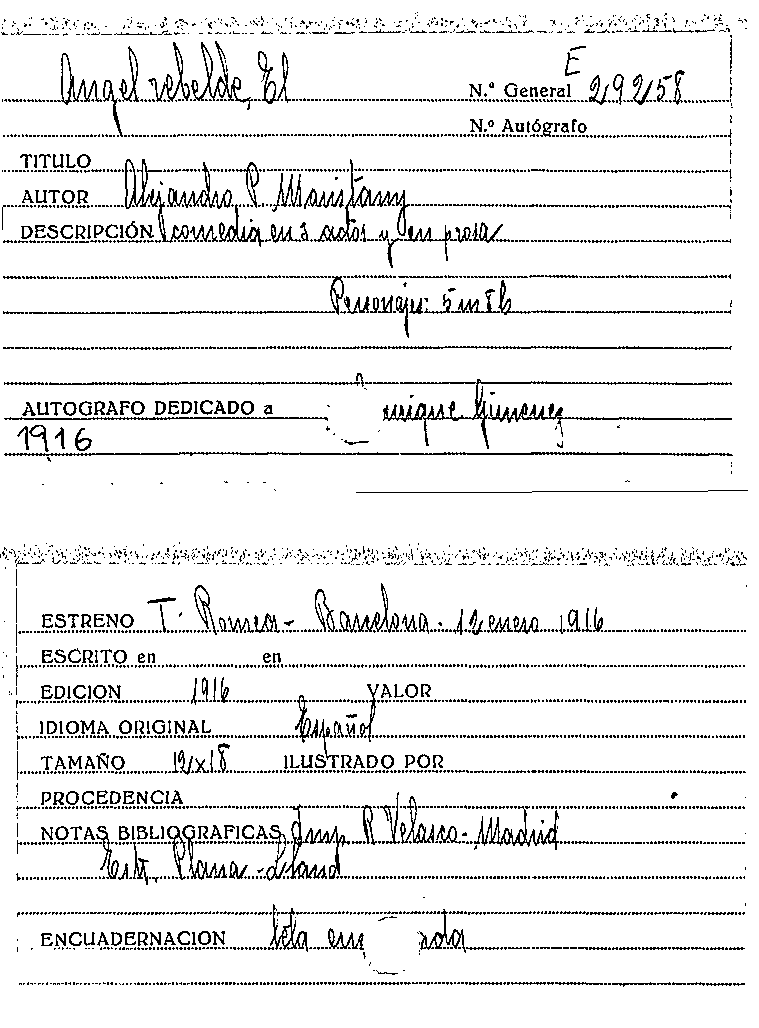 Angel rebelde, El
E
N.º General 29258
N.º Autógrafo
TITULO
AUTOR Alejandro P. Maristany
DESCRIPCIÓN comedia en 3 actos y en prosa
Personajes: 5 m 8 h
AUTOGRAFO DEDICADO a Enrique Gimenez
1916
ESTRENO T. Romea - Barcelona - 12 enero 1916
ESCRITO en en
EDICION 1916 VALOR
IDIOMA ORIGINAL Español
TAMAÑO 12x18 ILUSTRADO POR
PROCEDENCIA
NOTAS BIBLIOGRAFICAS Imp. R. Velasco - Madrid
Plana
ENCUADERNACION tela